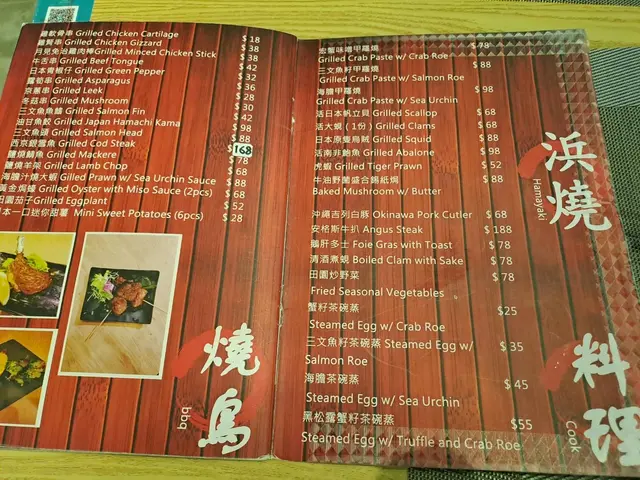 雞軟骨串 Grilled Chicken Cartilage $18
雞腎串 Grilled Chicken Gizzard $38
月見免治雞肉棒Grilled Minced Chicken Stick $38
牛舌串 Grilled Beef Tongue $42
日本青椒仔 Grilled Green Pepper $32
露筍串 Grilled Asparagus $36
京蔥串 Grilled Leek $28
冬菇串 Grilled Mushroom $30
三文魚鰭 Grilled Salmon Fin $42
油甘魚鮫 Grilled Japan Hamachi Kama $98
三文魚頭 Grilled Salmon Head $88
西京銀鱈魚 Grilled Cod Steak 168
鹽燒鯖魚 Grilled Mackere $78
鹽燒羊架 Grilled Lamb Chop $68
海膽汁燒大蝦 Grilled Prawn w/ Sea Urchin Sauce $88
黃金焗蠔 Grilled Oyster with Miso Sauce (2pcs) $68
田園茄子Grilled Eggplant $52
本一口迷你甜薯 Mini Sweet Potatoes (6pcs) $28
燒鳥
bbq
蟹味噌甲羅燒 $78
Grilled Crab Paste w/ Crab Roe
三文魚籽甲羅燒 $88
Grilled Crab Paste w/ Salmon Roe
海膽甲羅燒 $98
Grilled Crab Paste w/ Sea Urchin
活日本帆立貝 Grilled Scallop $68
活大蜆 (1份) Grilled Clams $68
日本原隻烏賊 Grilled Squid $88
活南非鮑魚 Grilled Abalone $98
虎蝦 Grilled Tiger Prawn $52
牛油野菌盛合錫紙焗 $88
Baked Mushroom w/ Butter
沖繩吉列白豚 Okinawa Pork Cutler $68
安格斯牛扒 Angus Steak $188
鵝肝多士 Foie Gras with Toast $78
清酒煮蜆 Boiled Clam with Sake $78
田園炒野菜 $78
Fried Seasonal Vegetables
蟹籽茶碗蒸 $25
Steamed Egg w/ Crab Roe
三文魚籽茶碗蒸 Steamed Egg w/ $35
Salmon Roe
海膽茶碗蒸 $45
Steamed Egg w/ Sea Urchin
黑松露蟹籽茶碗蒸 $55
Steamed Egg w/ Truffle and Crab Roe
浜燒
Hamayaki
料理
Cook